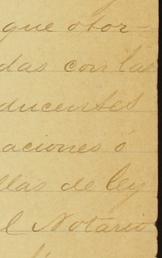 que otor-
das con las
ducentes
aciones ó
llas de ley
l Notario